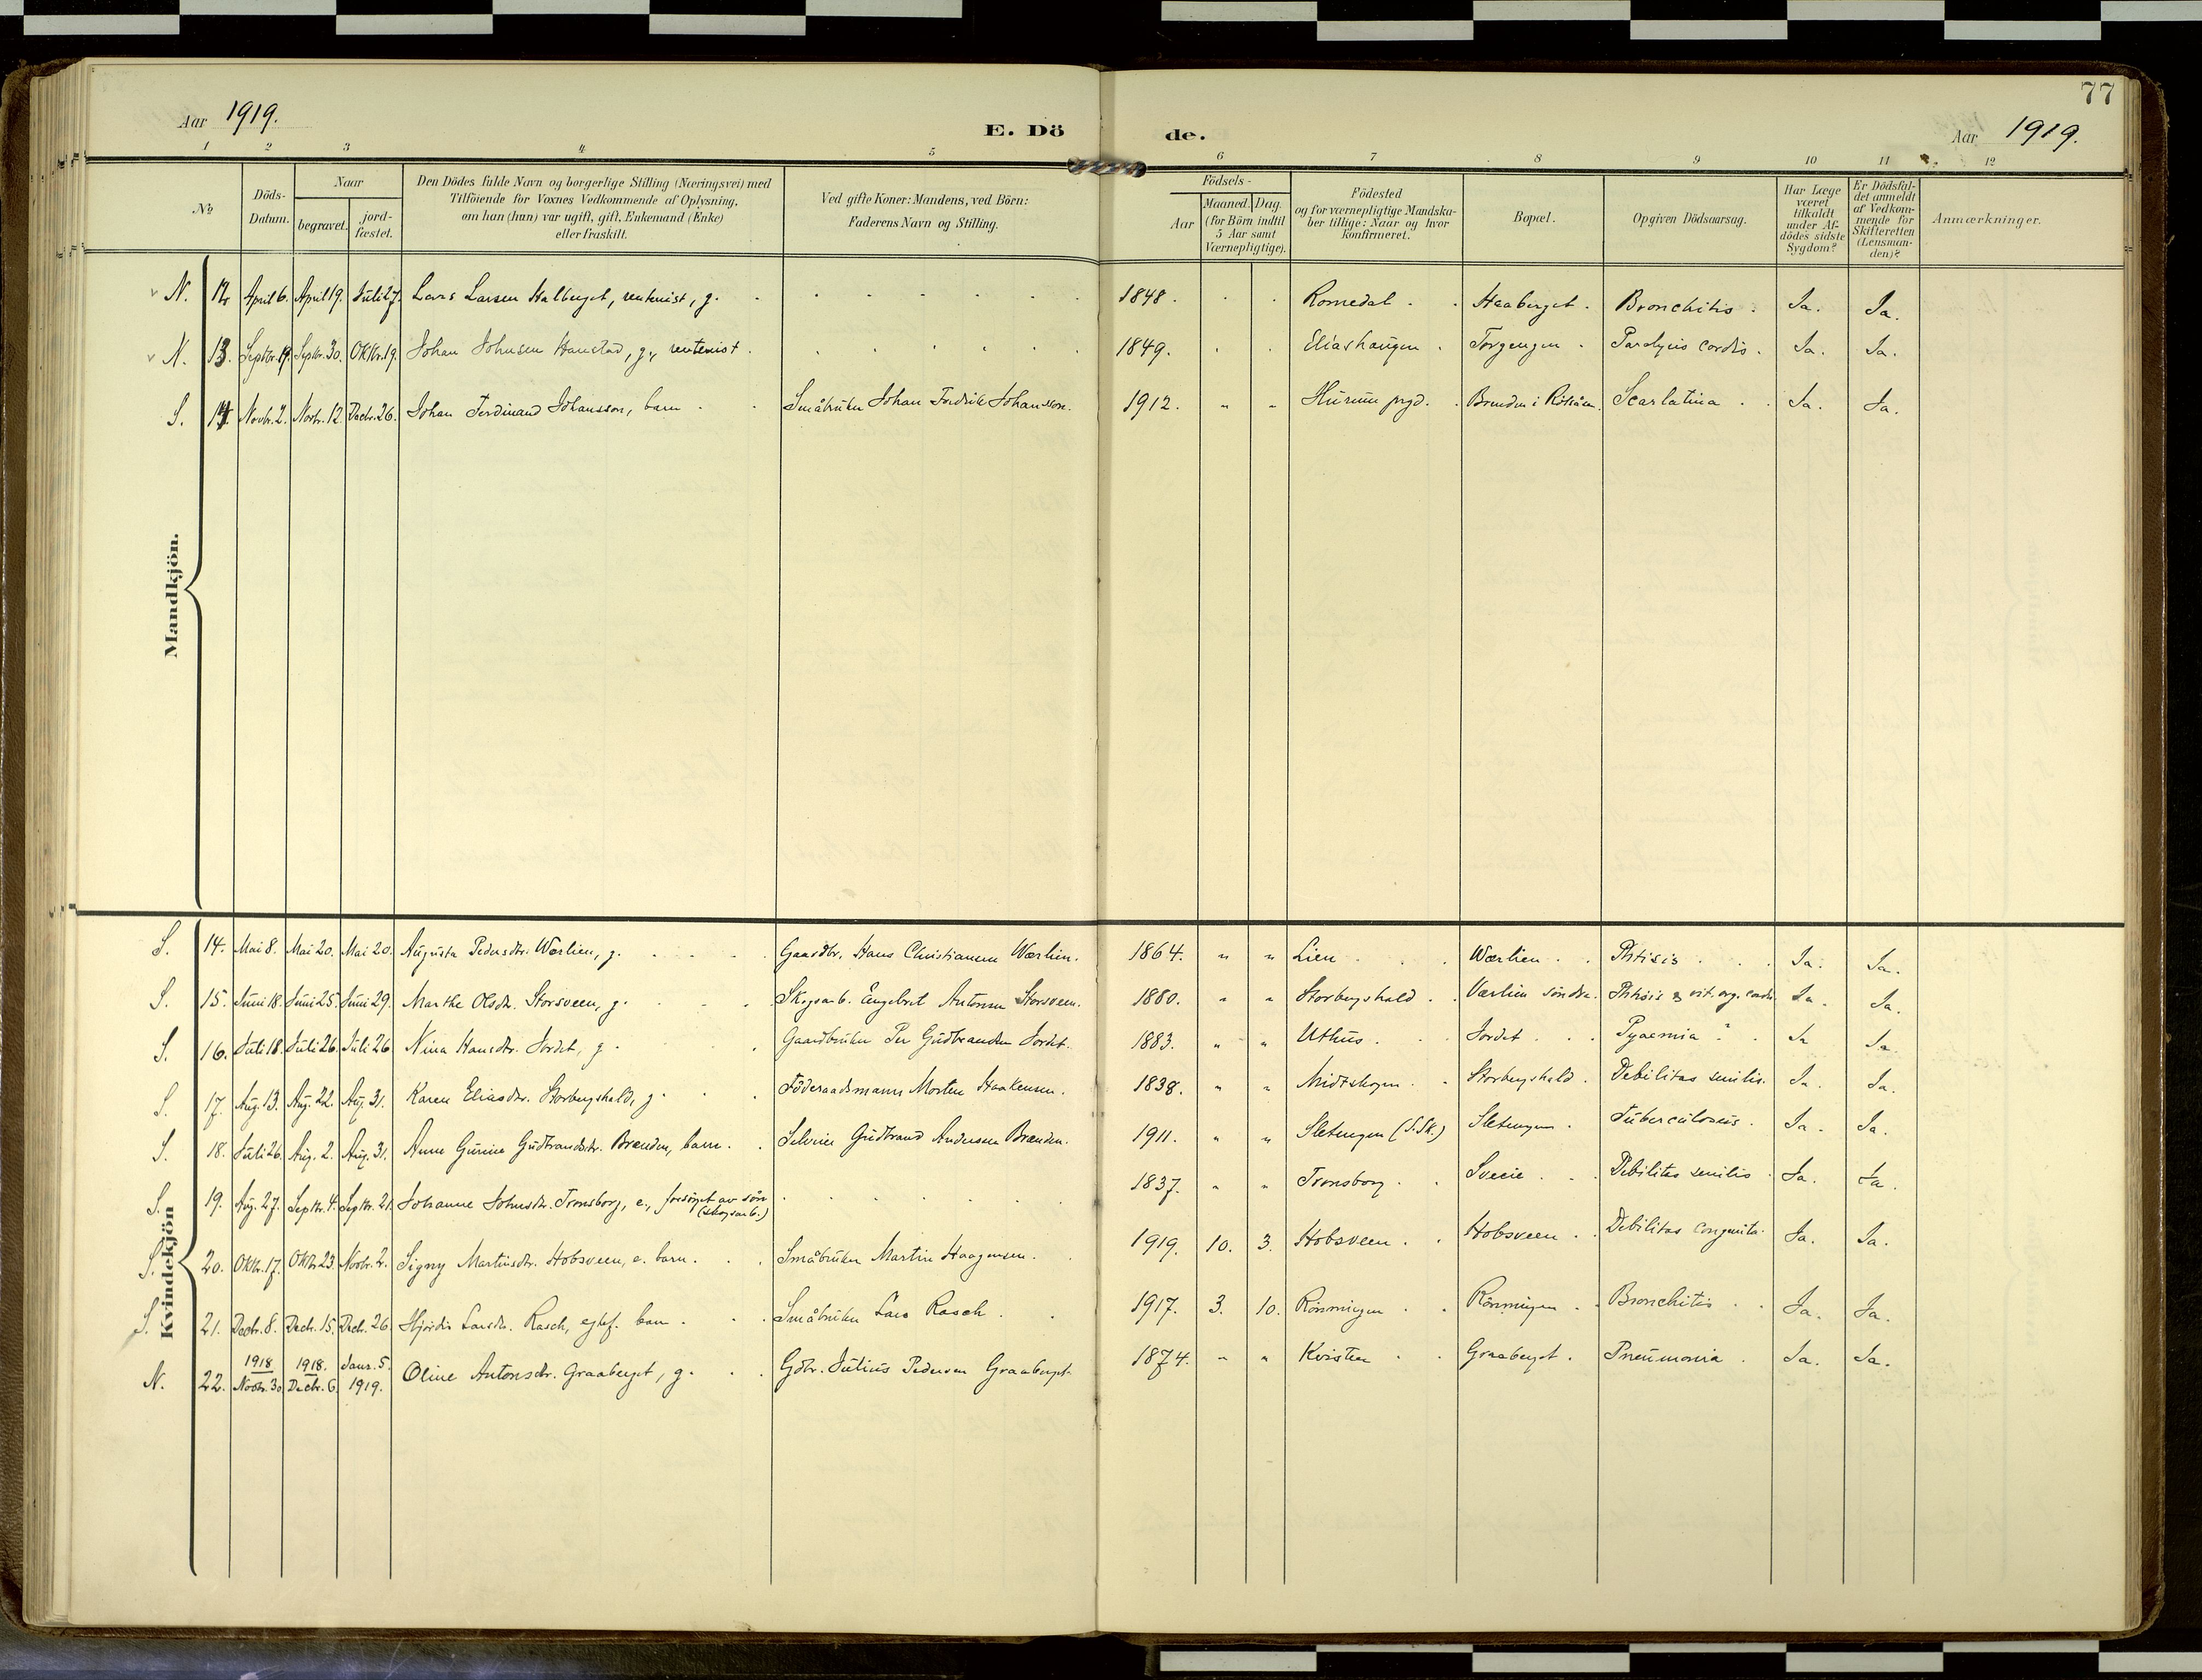 77
Aar 1919. E. Dö de. Aar 1919.
1 2 3 4 5 6 7 8 9 10 11 12
No
Döds-Datum.
Naar
begravet.
jord-fæstet.
Den Dödes fulde Navn og borgerlige Stilling (Næringsvei) med
Tilföiende for Voxnes Vedkommende af Oplysning,
om han (hun) var ugift, gift, Enkemand (Enke)
eller fraskilt.
Ved gifte Koner: Mandens, ved Börn:
Faderens Navn og Stilling.
Födsels-
Aar
Maaned. Dag.
(for Börn indtil
5 Aar samt
Værnepligtige).
Födested
og for værnepligtige Mandska-
ber tillige: Naar og hvor
konfirmeret.
Bopæl.
Opgiven Dödsaarsag.
Har Læge
været
tilkaldt
under Af-
dödes sidste
Sygdom?
Er Dödsfal-
det anmeldt
af Vedkom-
mende for
Skifteretten
(Lensman-
den)?
Anmærkninger.
Mandkjön.
N. 12 April 6. April 19. Juli 27. Lars Larsen Halberget, rentenist, g. 1848. Romedal Haaberget. Bronchitis. Ja. Ja.
N. 13. Septbr. 19. Septbr. 30. Oktbr. 19. Johan Johnsen Hanstad, g., rentenist 1849. Eliashaugen Torgengen Paralysis cordis. Ja. Ja.
S. 14. Novbr. 2. Novbr. 12. Decbr. 26. Johan Ferdinand Johansson, barn Småbruker Johan Fredrik Johansson. 1912. " " Hurum prgd. Brenden i Scarlatina Ja. Ja.
Kvindekjön
S. 14. Mai 8. Mai 20. Mai 20. Augusta Pedersdtr. Wærlien, g. Gaardbr. Hans Christiansen Wærlien. 1864. " " Lien Wærlien Phtisis Ja. Ja.
S. 15. Juni 18. Juni 25. Juni 29. Marthe Olsdtr. Storsveen, g. Skogsarb. Engebret Antonsen Storsveen. 1880. " " Storbergshold Værlien söndre. Phtisis & vit. org. cordis Ja. Ja.
S. 16. Juli 18. Juli 26. Juli 26 Nina Hansdtr. Jordet, g. Gaardbruker Per Gudbrandsen Jordet. 1883. " " Uthus Jordet Pyaemia ? Ja Ja
S. 17. Aug. 13. Aug. 22. Aug. 31. Karen Eliasdtr. Storbergshold, g. Föderaadsmann Morten Haakensen. 1838. " " Midtskogen Storbergshold. Debilitas senilis. Ja. Ja.
S. 18. Juli 26. Aug. 2. Aug. 31. Anne Gurine Gudbrandsdtr. Brænden, barn. Selveier Gudbrand Andersen Brænden. 1911. " " Sletengen (S.Sk.) Sletengen. Tuberculosis. Ja. Ja.
S. 19. Aug. 27. Septbr. 4. Septbr. 21. Johanne Johnsdtr. Tronsborg, e., forsörget av sön
(skogsarb.) 1837. " " Tronsborg Svecie Debilitas senilis Ja. Ja.
S. 20. Oktbr. 17. Oktbr. 23. Novbr. 2. Signy Martinsdtr. Hobsveen, e. barn. Småbruker Martin Haagensen. 1919. 10. 3. Hobsveen. Hobsveen. Debilitas congenita. Ja. Ja.
S. 21. Decbr. 8. Decbr. 15. Decbr. 26. Hjördis Larsdtr. Rasch, egtef. barn Småbruker Lars Rasch 1917. 3. 10. Rönningen Rönningen Bronchitis Ja. Ja.
N. 22. 1918 Novbr. 30. 1918. Decbr. 6. Janr. 5. 1919. Oline Antonsdtr. Graaberget, g. Gdbr. Julius Pedersen Graaberget. 1874. " " Kvisten Graaberget. Pneumonia Ja. Ja.